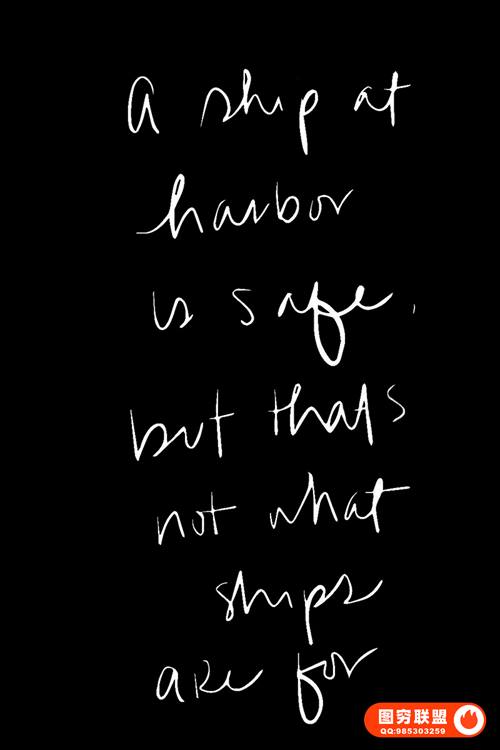 a ship at
harbor
is safe,
but thats
not what
ships
are for
图穷联盟
QQ:985303259